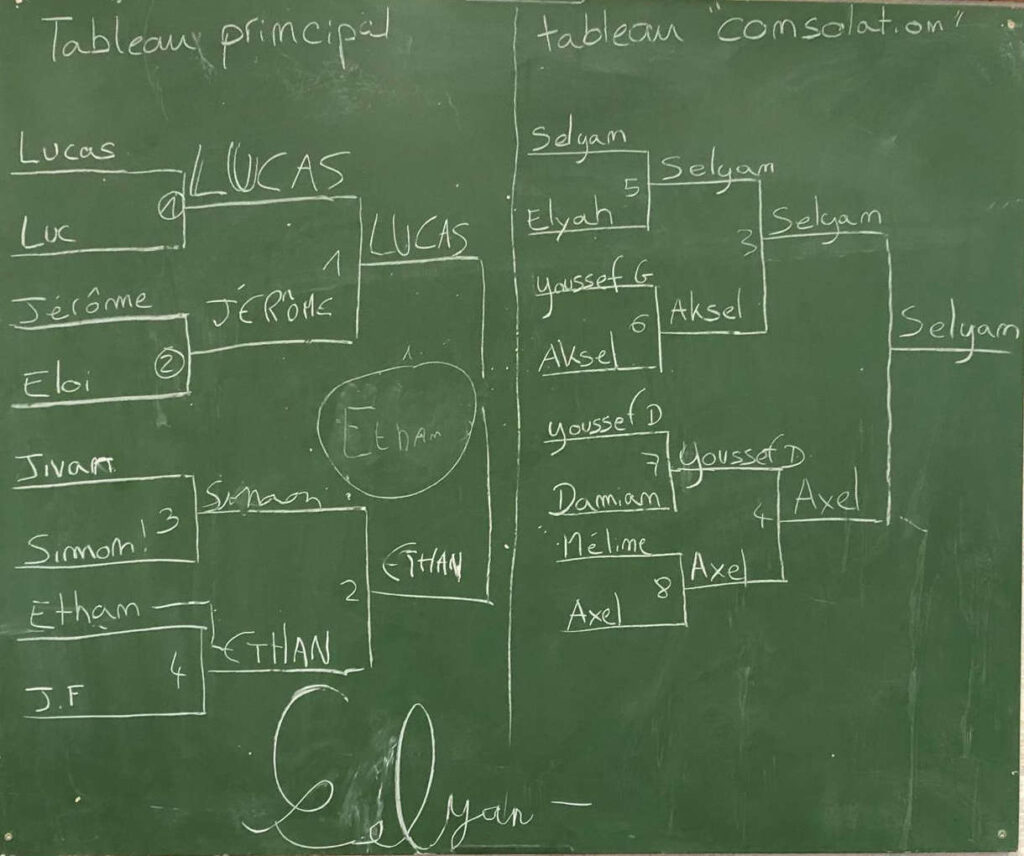 Tableau principal
Lucas
LUCAS
1
Luc
LUCAS
1
Jérôme
JÉRÔME
2
Eloi
1.
Ethan
Jivan
Simon
3
Simon!
ETHAN
2
Ethan
ETHAN
4
J.F
tableau "consolation"
Selyam
Selyam
5
Elyah
Selyam
3
Youssef G
Aksel
6
Aksel
Selyam
Youssef D
Youssef D
7
Damian
Axel
4
Méline
Axel
8
Axel